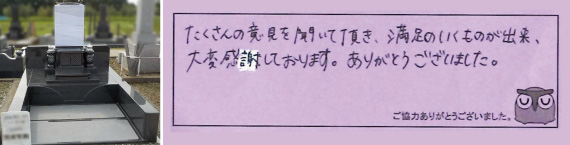 たくさんの意見を聞いて頂き、満足のいくものが出来、
大変感謝しております。ありがとうございました。
ご協力ありがとうございました。